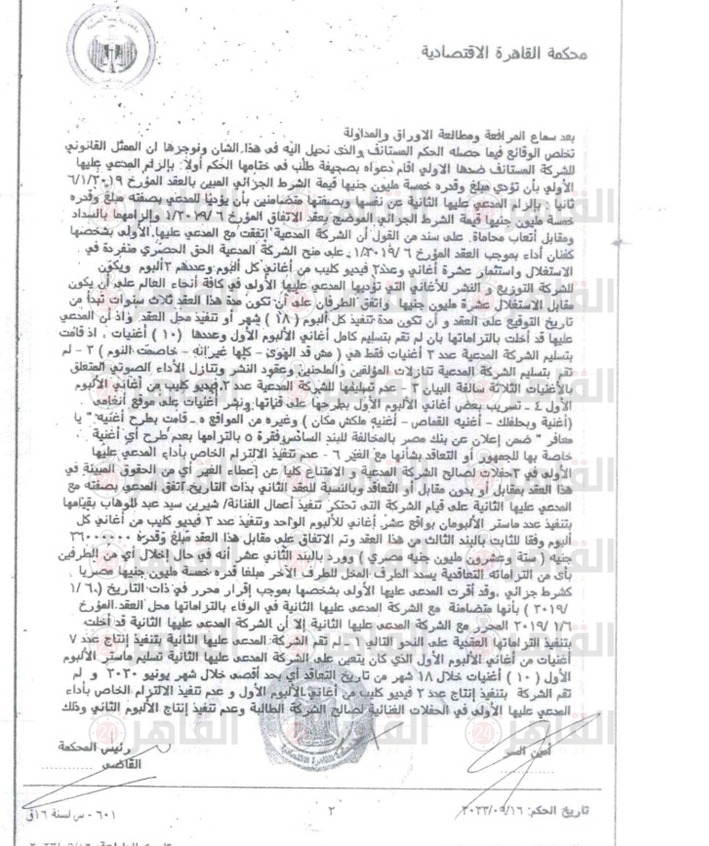 محكمة القاهرة الاقتصادية
بعد سماع المرافعة ومطالعة الاوراق والمداولة
تخلص الوقائع فيما حصله الحكم المستانف والذى نحيل اليه فى هذا الشان ونوجزها ان الممثل القانونى
للشركة المستانف ضدها الاولي اقام دعواه بصحيفة طلب فى ختامها الحكم أولا: بإلزام المدعي عليها
الأولي بأن تؤدي مبلغ وقدره خمسة مليون جنيها قيمة الشرط الجزائي المبين بالعقد المؤرخ ٦/١/٢٠١٩
ثانيا : بإلزام المدعي عليها الثانية عن نفسها وبصفتها متضامنين بأن يؤديا للمدعي بصفته مبلغ وقدره
خمسة مليون جنيها قيمة الشرط الجزائي الموضح بعقد الاتفاق المؤرخ ١/٢٠١٩/٦ وإلزامهما بالسداد
ومقابل أتعاب محاماة. على سند من القول أن الشركة المدعية إتفقت مع المدعي عليها الأولى بشخصها
كفنان أداء بموجب العقد المؤرخ ١/٢٠١٩/٦ على منح الشركة المدعية الحق الحصري منفردة في
الاستغلال واستثمار عشرة أغاني وعدد٢ فيديو كليب من أغاني كل ألبوم وعددهم ٢ألبوم ويكون
للشركة التوزيع و النشر للأغاني التي تؤديها المدعي عليها الأولى في كافة أنحاء العالم على أن يكون
مقابل الاستغلال عشرة مليون جنيها واتفق الطرفان على أن تكون مدة هذا العقد ثلاث سنوات تبدأ من
تاريخ التوقيع على العقد و أن تكون مدة تنفيذ كل ألبوم ( ١٨ ) شهر أو تنفيذ محل العقد وإذ أن المدعي
عليها قد أخلت بالتزاماتها بان لم تقم بتسليم كامل أغاني الألبوم الأول وعددها (١٠) أغنيات ، اذ قامت
بتسليم الشركة المدعية عدد ٣ أغنيات فقط هي ( مش قد الهوى – كلها غيرانه – خاصمت النوم ) ٢- لم
تقم بتسليم الشركة المدعية تنازلات المؤلفين والملحنين وعقود النشر وتنازل الأداء الصوتي المتعلق
بالأغنيات الثلاثة سالفة البيان ٣ - عدم تسليمها للشركة المدعية عدد ٢ فيديو كليب من أغاني الألبوم
الأول ٤ - تسريب بعض أغاني الألبوم الأول بطرحها على قناتها ونشر أغنيات على موقع أنغامي
(أغنية وبحفلك – أغنيه القماص – أغنية ملكش مكان ) وغيره من المواقع ٥ - قامت بطرح أغنيه " يا
مغافر " ضمن إعلان عن بنك مصر بالمخالفة للبند السادس فقرة ٥ بالتزامها بعدم طرح أي أغنية
خاصة بها للجمهور أو التعاقد بشأنها مع الغير ٦ - عدم تنفيذ الالتزام الخاص بأداء المدعي عليها
الأولى في ٣حفلات لصالح الشركة المدعية و الامتناع كليا عن إعطاء الغير أي من الحقوق المبينة في
هذا العقد بمقابل أو بدون مقابل أو التعاقد وبالنسبة للعقد الثاني بذات التاريخ إتفق المدعي بصفته مع
المدعي عليها الثانية على قيام الشركة التي تحتكر تنفيذ أعمال الفنانة/ شيرين سيد عبد الوهاب بقيامها
بتنفيذ عدد ماستر الألبومان بواقع عشر أغاني للألبوم الواحد وتنفيذ عدد ٢ فيديو كليب من أغاني كل
ألبوم وفقا للثابت بالبند الثالث من هذا العقد وتم الاتفاق على مقابل هذا العقد مبلغ وقدره ٢٦٠٠٠٠٠٠
جنيه (ستة وعشرون مليون جنيه مصري ) وورد بالبند الثاني عشر أنه في حال إخلال أي من الطرفين
بأي من التزاماته التعاقدية يسدد الطرف المخل للطرف الآخر مبلغا قدره خمسة مليون جنيها مصريا
كشرط جزائي ،وقد أقرت المدعي عليها الأولى بشخصها بموجب إقرار محرر في ذات التاريخ (٦/ ١
/٢٠١٩) بأنها متضامنة مع الشركة المدعي عليها الثانية في الوفاء بالتزاماتها محل العقد المؤرخ
٢٠١٩ ١/٦ المحرر مع الشركة المدعي عليها الثانية إلا أن الشركة المدعي عليها الثانية قد أخلت
بتنفيذ التزاماتها العقدية على النحو التالي ١ - لم تقم الشركة المدعى عليها الثانية بتنفيذ إنتاج عدد ٧
أغنيات من أغاني الألبوم الأول الذي كان يتعين على الشركة المدعي عليها الثانية تسليم ماستر الألبوم
الأول ( ١٠ ) أغنيات خلال ١٨ شهر من تاريخ التعاقد أي بحد أقصى خلال شهر يونيو ٢٠٢٠ و لم
تقم الشركة بتنفيذ إنتاج عدد ٢ فيديو كليب من أغاني الألبوم الأول و عدم تنفيذ الالتزام الخاص بأداء
المدعي عليها الأولى في الحفلات الغنائية لصالح الشركة الطالبة وعدم تنفيذ إنتاج الألبوم الثاني وذلك
أمين السر
رئيس المحكمة
القاضي
تاريخ الحكم: ٢٠٢٣/٠٩/١٦
٢
٦٠١ - س لسنة ١٦ق
القاهرة 24